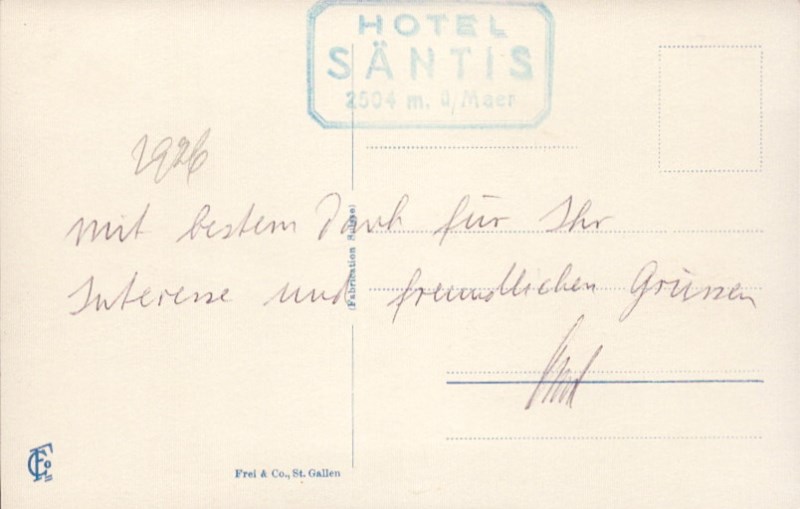 HOTEL
SÄNTIS
2504 m. ü, Meer
1926
Mit bestem Dank für Ihr
Interesse und freundlichen Grüssen
(Fabrication Suisse)
Frei & Co., St. Gallen